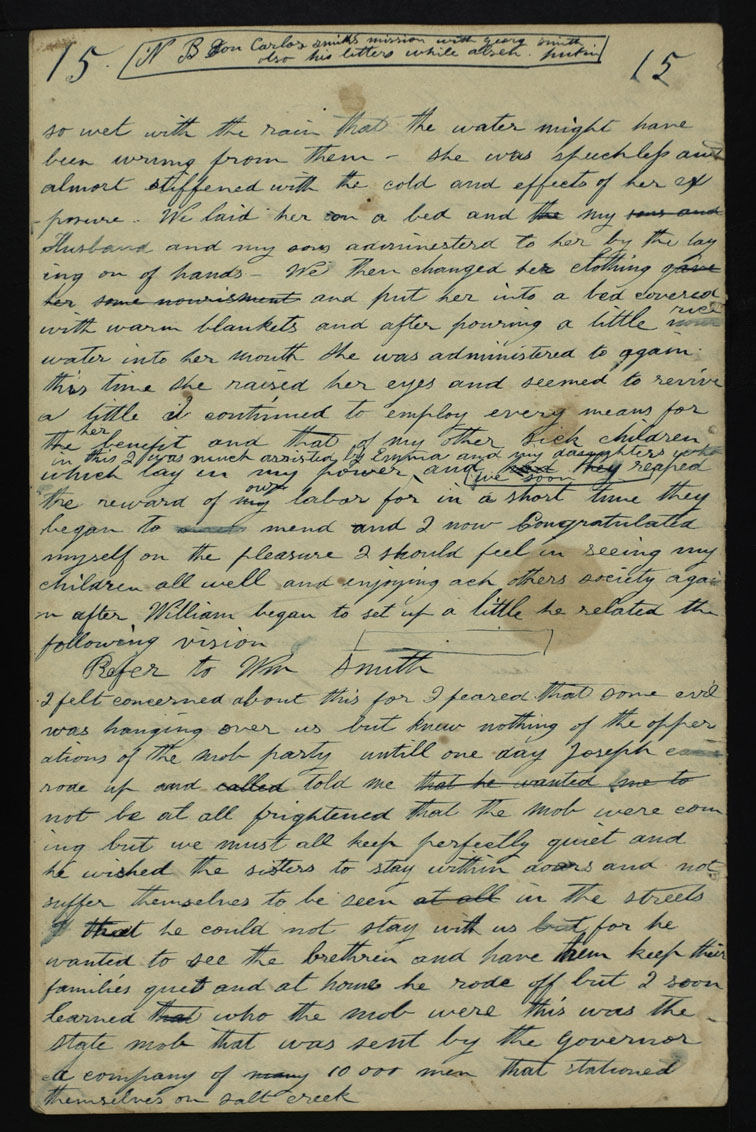 15. N B Don Carlos smiths mission with georg smith 15
also his letters while absen.
so wet with the rain that the water might have
been wrung from them – she was speechless and
almost stiffened with the cold and effects of her ex
-posure – We laid her on a bed and the my sons and
Husband and my sons administerd to her by the lay
ing on of hands – We then changed her clothing gave
her some nourisment and put her into a bed covered
with warm blankets and after pouring a little rice
water into her mouth she was administered to again.
this time she raised her eyes and seemed to revive
a little I continued to employ every means for
the her benefit and that of my other sick children
in this I was much assisted by Emma and my daughters
which lay in my power and they we soon reaped
the reward of my own labor for in a short time they
began to mend and I now Congratulated
myself on the pleasure I should feel in seeing my
children all well and enjoying ach others society agai
n after William began to set up a little he related the
following vision
Refer to Wm Smith
I felt concerned about this for I feared that some evil
was hanging over us but knew nothing of the opper
ations of the mob party untill one day Joseph
rode up and called told me that he wanted me to
not be at all frightened that the mob were com
ing but we must all keep perfectly quiet and
he wished the sisters to stay within doors and not
suffer themselves to be seen at all in the streets
that he could not stay with us but for he
wanted to see the brethren and have them keep their
families quiet and at home he rode off but I soon
learned that who the mob were this was the
state mob that was sent by the Governor
a company of many 10 000 men that stationed
themselves on salt creek